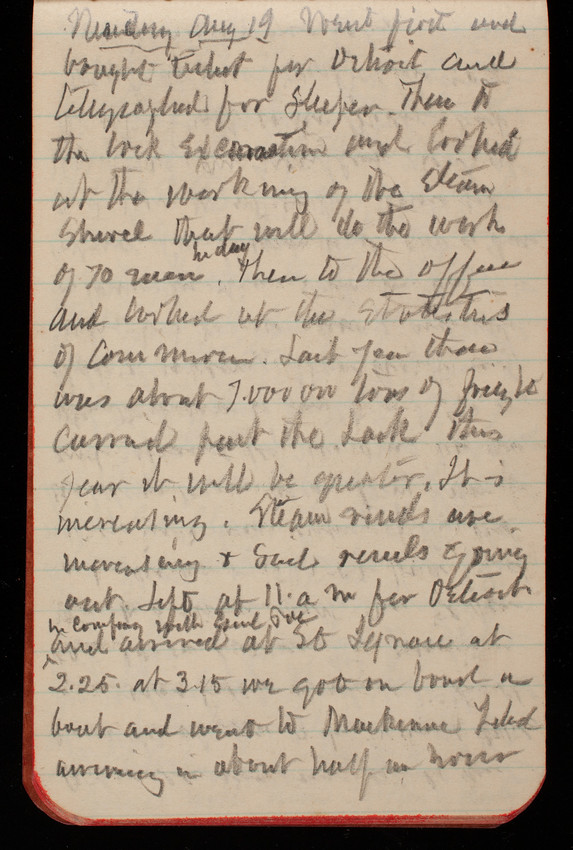 Aug 19 Went first and
bought ticket for Detroit and
telegraphed for Sleeper. Then to
the lock Excavation and looked
at the working of the Steam
Shovel that will do the work
of 70 men in day. Then to the office
and looked at the Statistics
of Commerce. Last year there
was about 7.000 000 tons of freight
carried past the Lock This
year it will be greater. It is
increasing. Steam vessels are
increasing & Sail vessels going
out. Left at 11. a m for Detroit
in company with
and arrived at St Ignace at
2.25. at 3.15 we got on board a
boat and went to Mackinac Island
arriving in about half an hour